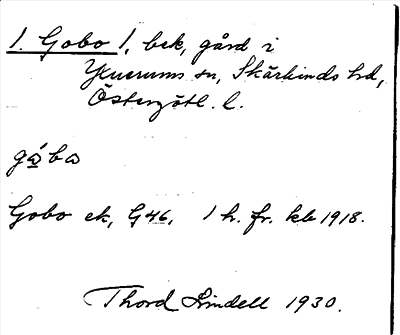 1. Gobo 1, bek, gård i
Yxnerums sn, Skärkinds hd,
Östergötl. l.
gå̀ba
Gobo ek, G46, 1 h. fr. kb 1918.
Thord Lindell 1930.